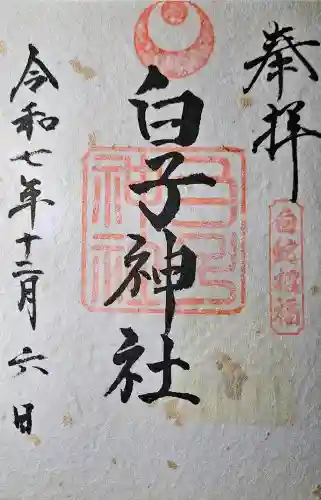 奉拝
白蛇招福
白子神社
令和七年十二月六日